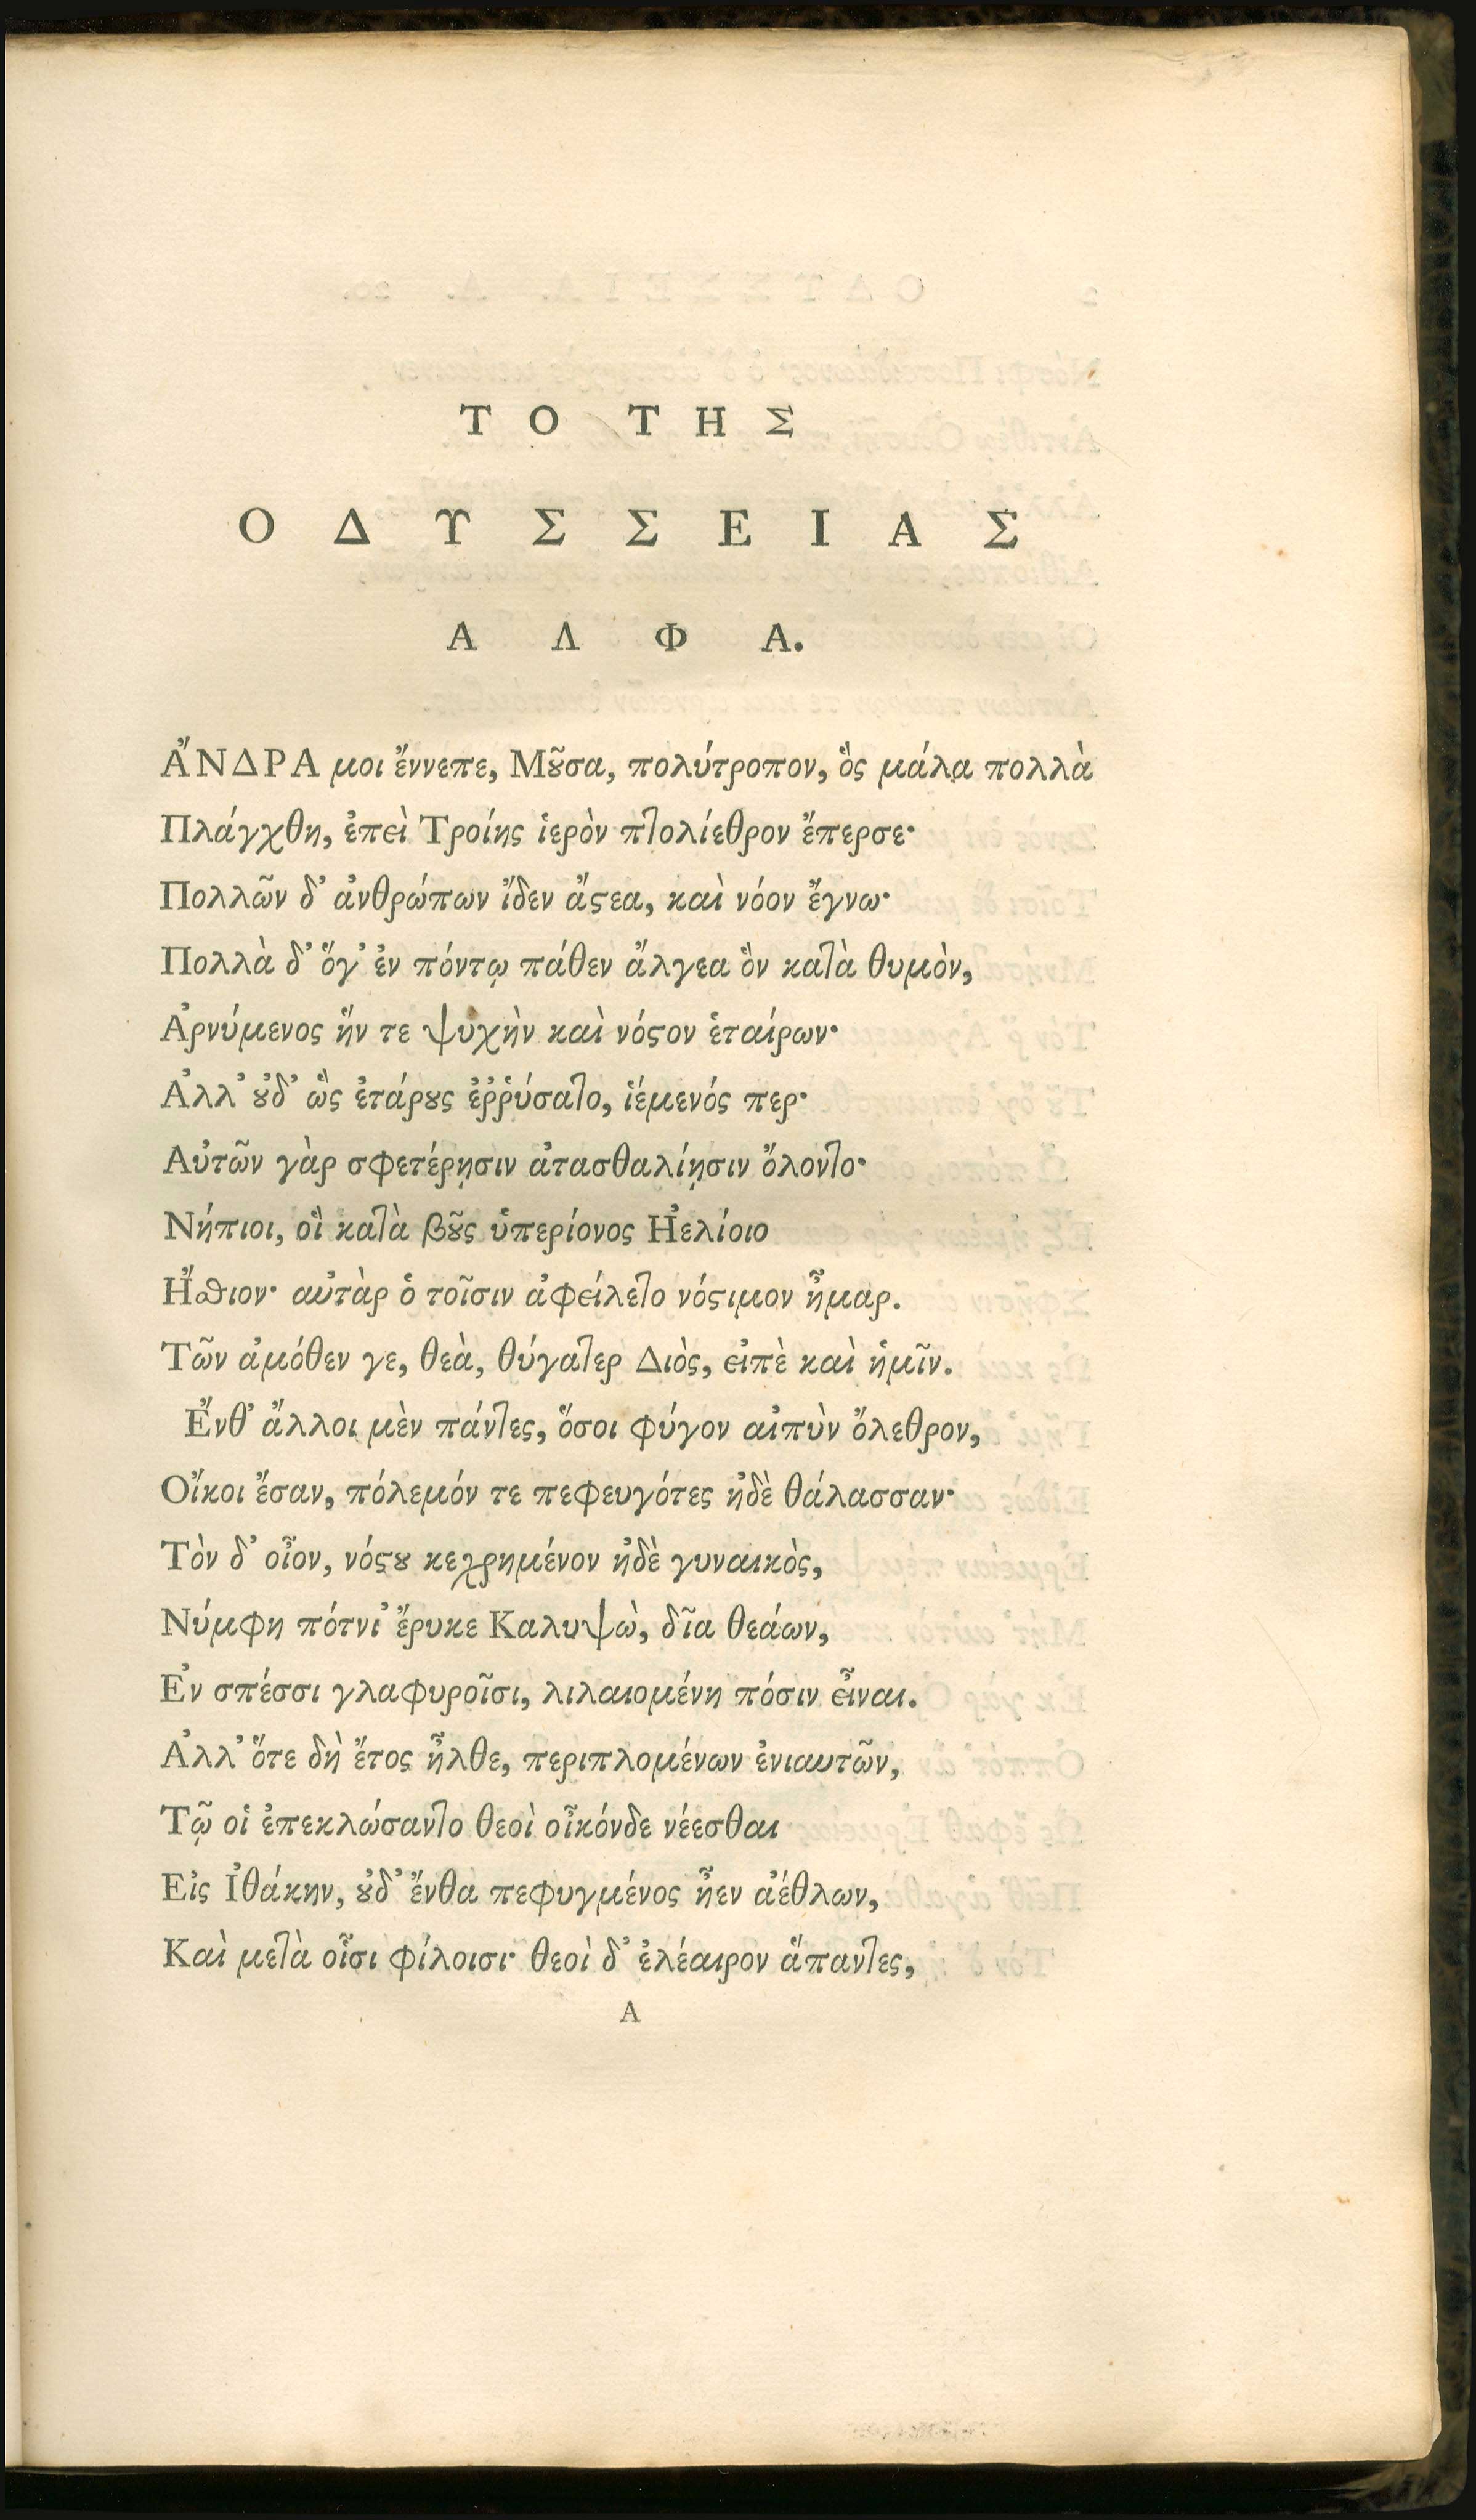 ΤΟ ΤΗΣ
ΟΔΥΣΣΕΙΑΣ
ΑΛΦΑ.
ἌΝΔΡΑ μοι ἔννεπε, Μȣ͂σα, πολύτροπον, ὃς μάλα πολλὰ
Πλάγχθη, ἐπεὶ Τροίης ἱερὸν πτολίεθρον ἔπερσε·
Πολλῶν δ᾽ ἀνθρώπων ἴδεν ἄϛεα, καὶ νόον ἔγνω·
Πολλὰ δ᾽ ὅγ᾽ ἐν πόντῳ πάθεν ἄλγεα ὃν κατὰ θυμὸν,
Ἀρνύμενος ἥν τε ψυχὴν καὶ νόϛον ἑταίρων·
Ἀλλ᾽ ȣ̓δ᾽ ὣς ἑτάρȣς ἐῤῥύσατο, ἱέμενός περ·
Αὐτῶν γὰρ σφετέρῃσιν ἀτασθαλίῃσιν ὄλοντο·
Νήπιοι, οἳ κατὰ βȣ͂ς ὑπερίονος Ἠελίοιο
Ἤσθιον· αὐτὰρ ὁ τοῖσιν ἀφείλετο νόϛιμον ἦμαρ.
Τῶν ἁμόθεν γε, θεὰ, θύγατερ Διὸς, εἰπὲ καὶ ἡμῖν.
Ἔνθ᾽ ἄλλοι μὲν πάντες, ὅσοι φύγον αἰπὺν ὄλεθρον,
Οἴκοι ἔσαν, πόλεμόν τε πεφευγότες ἠδὲ θάλασσαν·
Τὸν δ᾽ οἶον, νόϛȣ κεχρημένον ἠδὲ γυναικὸς,
Νύμφη πότνι᾽ ἔρυκε Καλυψὼ, δῖα θεάων,
Ἐν σπέσσι γλαφυροῖσι, λιλαιομένη πόσιν εἶναι.
Ἀλλ᾽ ὅτε δὴ ἔτος ἦλθε, περιπλομένων ἐνιαυτῶν,
Τῷ οἱ ἐπεκλώσαντο θεοὶ οἶκόνδε νέεσθαι
Εἰς Ἰθάκην, ȣ̓δ᾽ ἔνθα πεφυγμένος ἦεν ἀέθλων,
Καὶ μετὰ οἷσι φίλοισι· θεοὶ δ᾽ ἐλέαιρον ἅπαντες,
Α